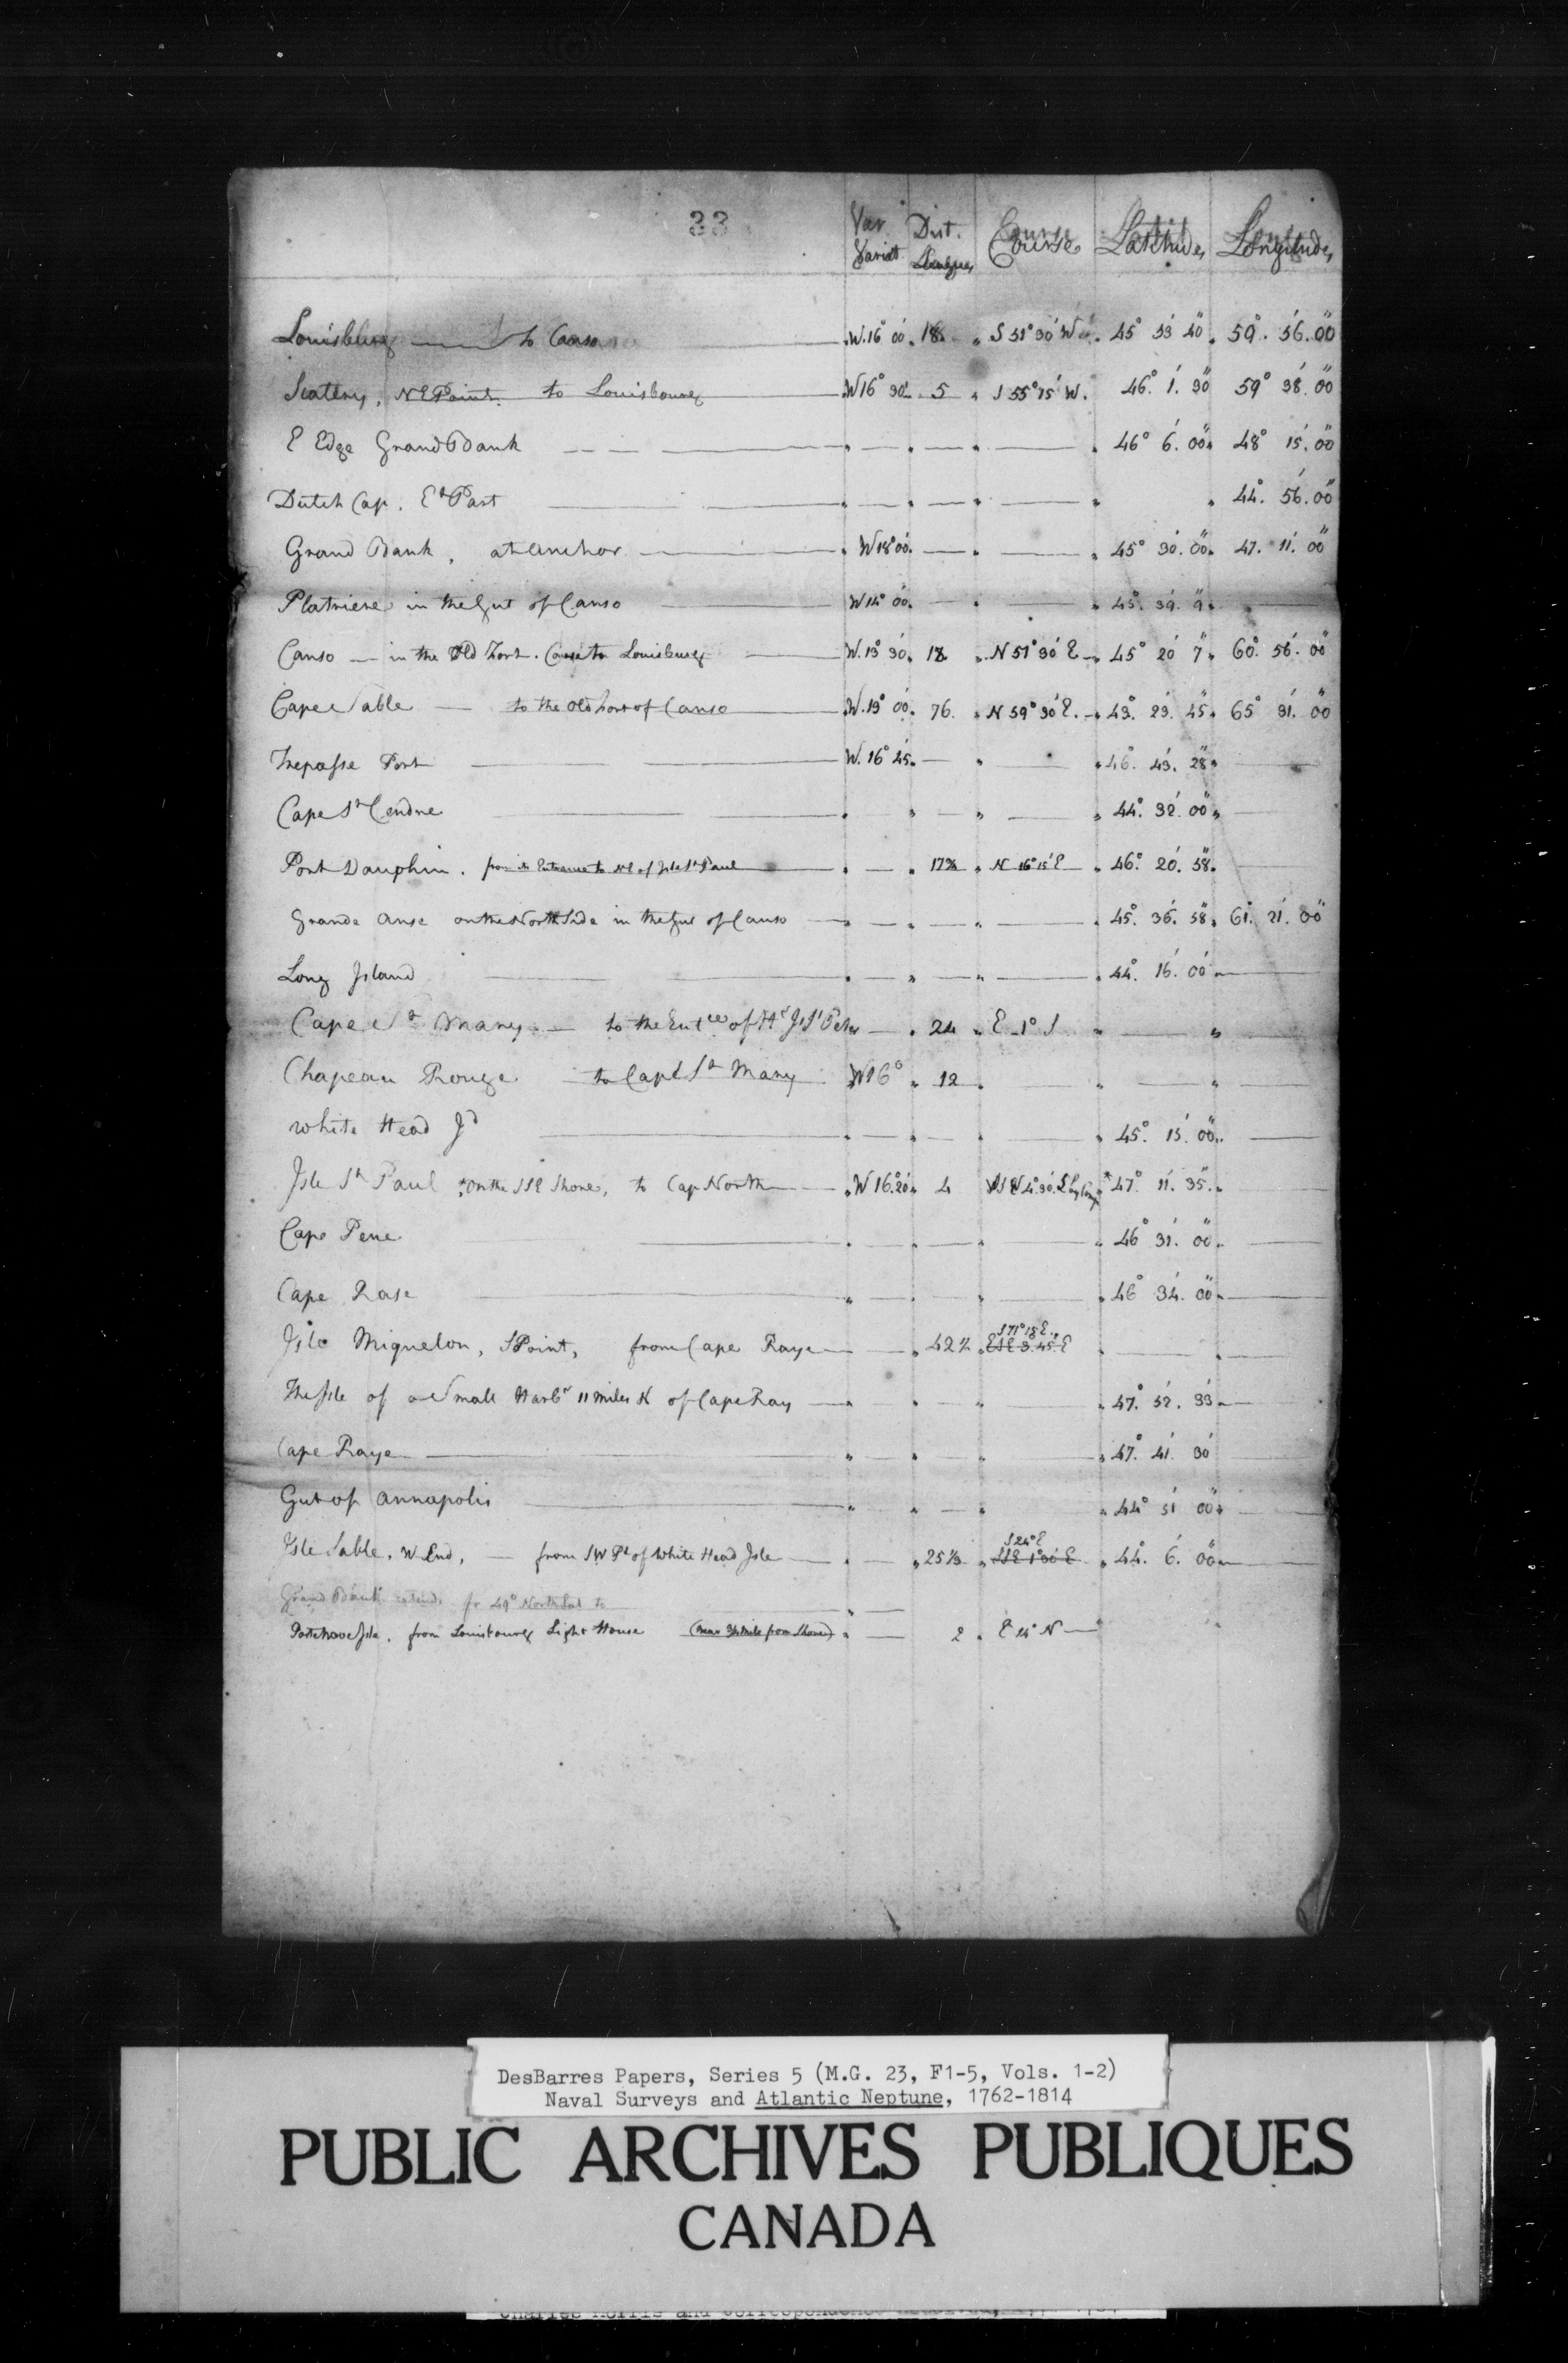 33
Var. Dist. Course Latitude Longitude
Variat. Leagues
Louisburg to Canso W. 16° 00' 18 S 51° 30' W 45° 53' 40" 59° 56' 00"
Scatery, NE Point. to Louisbourg W 16° 30' 5 S 55° 15' W. 46° 1' 30" 59° 38' 00"
E Edge Grand Bank 46° 6' 00" 48° 15' 00"
Dutch Cap. Et Part 44° 56' 00"
Grand Bank, at anchor W 18° 00' 45° 30' 00" 47. 11' 00"
Platriere in the Gut of Canso W 14° 00' 45° 39' 9"
Canso — in the Old Fort. Canso to Louisburg W. 13° 30' 18 N 51° 30' E 45° 20' 7" 60° 56' 00"
Cape Sable — to the Old Fort of Canso W. 13° 00' 76. N 59° 30' E. 43° 23' 45" 65° 31' 00"
Trepasse Port W. 16° 45' 46° 43' 28"
Cape St Cendre 44° 32' 00"
Port Dauphin. from its Entrance to NE of Isle St Paul 17⅔ N 16° 15' E 46° 20' 58"
Grande Anse on the North Side in the Gut of Canso 45° 36' 58" 61° 21' 00"
Long Island 44° 16' 00"
Cape St Mary — to the Entce of Hr Is St Peter 24 E 1° S
Chapeau Rouge to Cape St Mary W 16° 12
White Head Id 45° 15' 00"
Isle St Paul on the SSE Shore, to Cap North W 16° 20' 4 4° 30' E by Comp 47° 11' 35"
Cape Pene 46° 31' 00"
Cape Rase 46° 34' 00"
S 71° 15' E
Isle Miquelon, S Point, from Cape Raye 42½ ESE 3. 45' E
The Isle of a Small Harbr 11 miles N of Cape Ray 47° 52' 33"
Cape Raye 47° 41' 30"
Gut of Annapolis 44° 51' 00"
S 24° E
Isle Sable, W End, — from SW Pt of White Head Isle 25⅓ SSE 1° 30' E 44° 6' 00"
Grand Bank extends fr 49° North Lat to
Isle, from Louisbourg Light House (near ¾ Mile from Shore) 2 E 14° N
DesBarres Papers, Series 5 (M.G. 23, F1-5, Vols. 1-2)
Naval Surveys and Atlantic Neptune, 1762-1814
PUBLIC ARCHIVES PUBLIQUES
CANADA